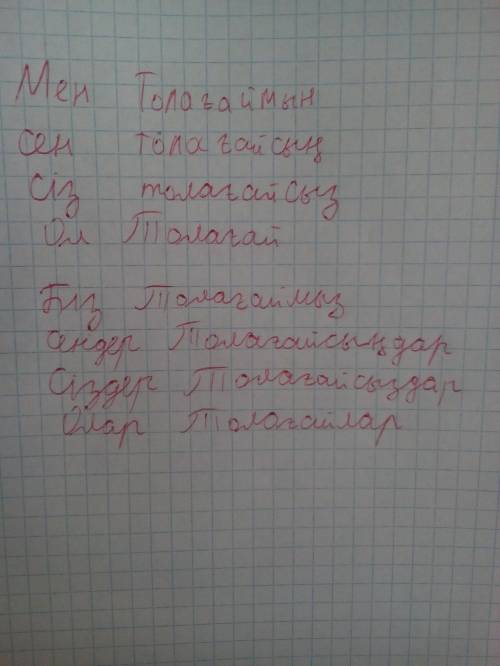 Мен Толағаймын
сен толағайсың
сіз толағайсыз
Ол Толағай
Біз Толағаймыз
сендер Толағайсыңдар
Сіздер Толағайсыздар
Олар Толағайлар